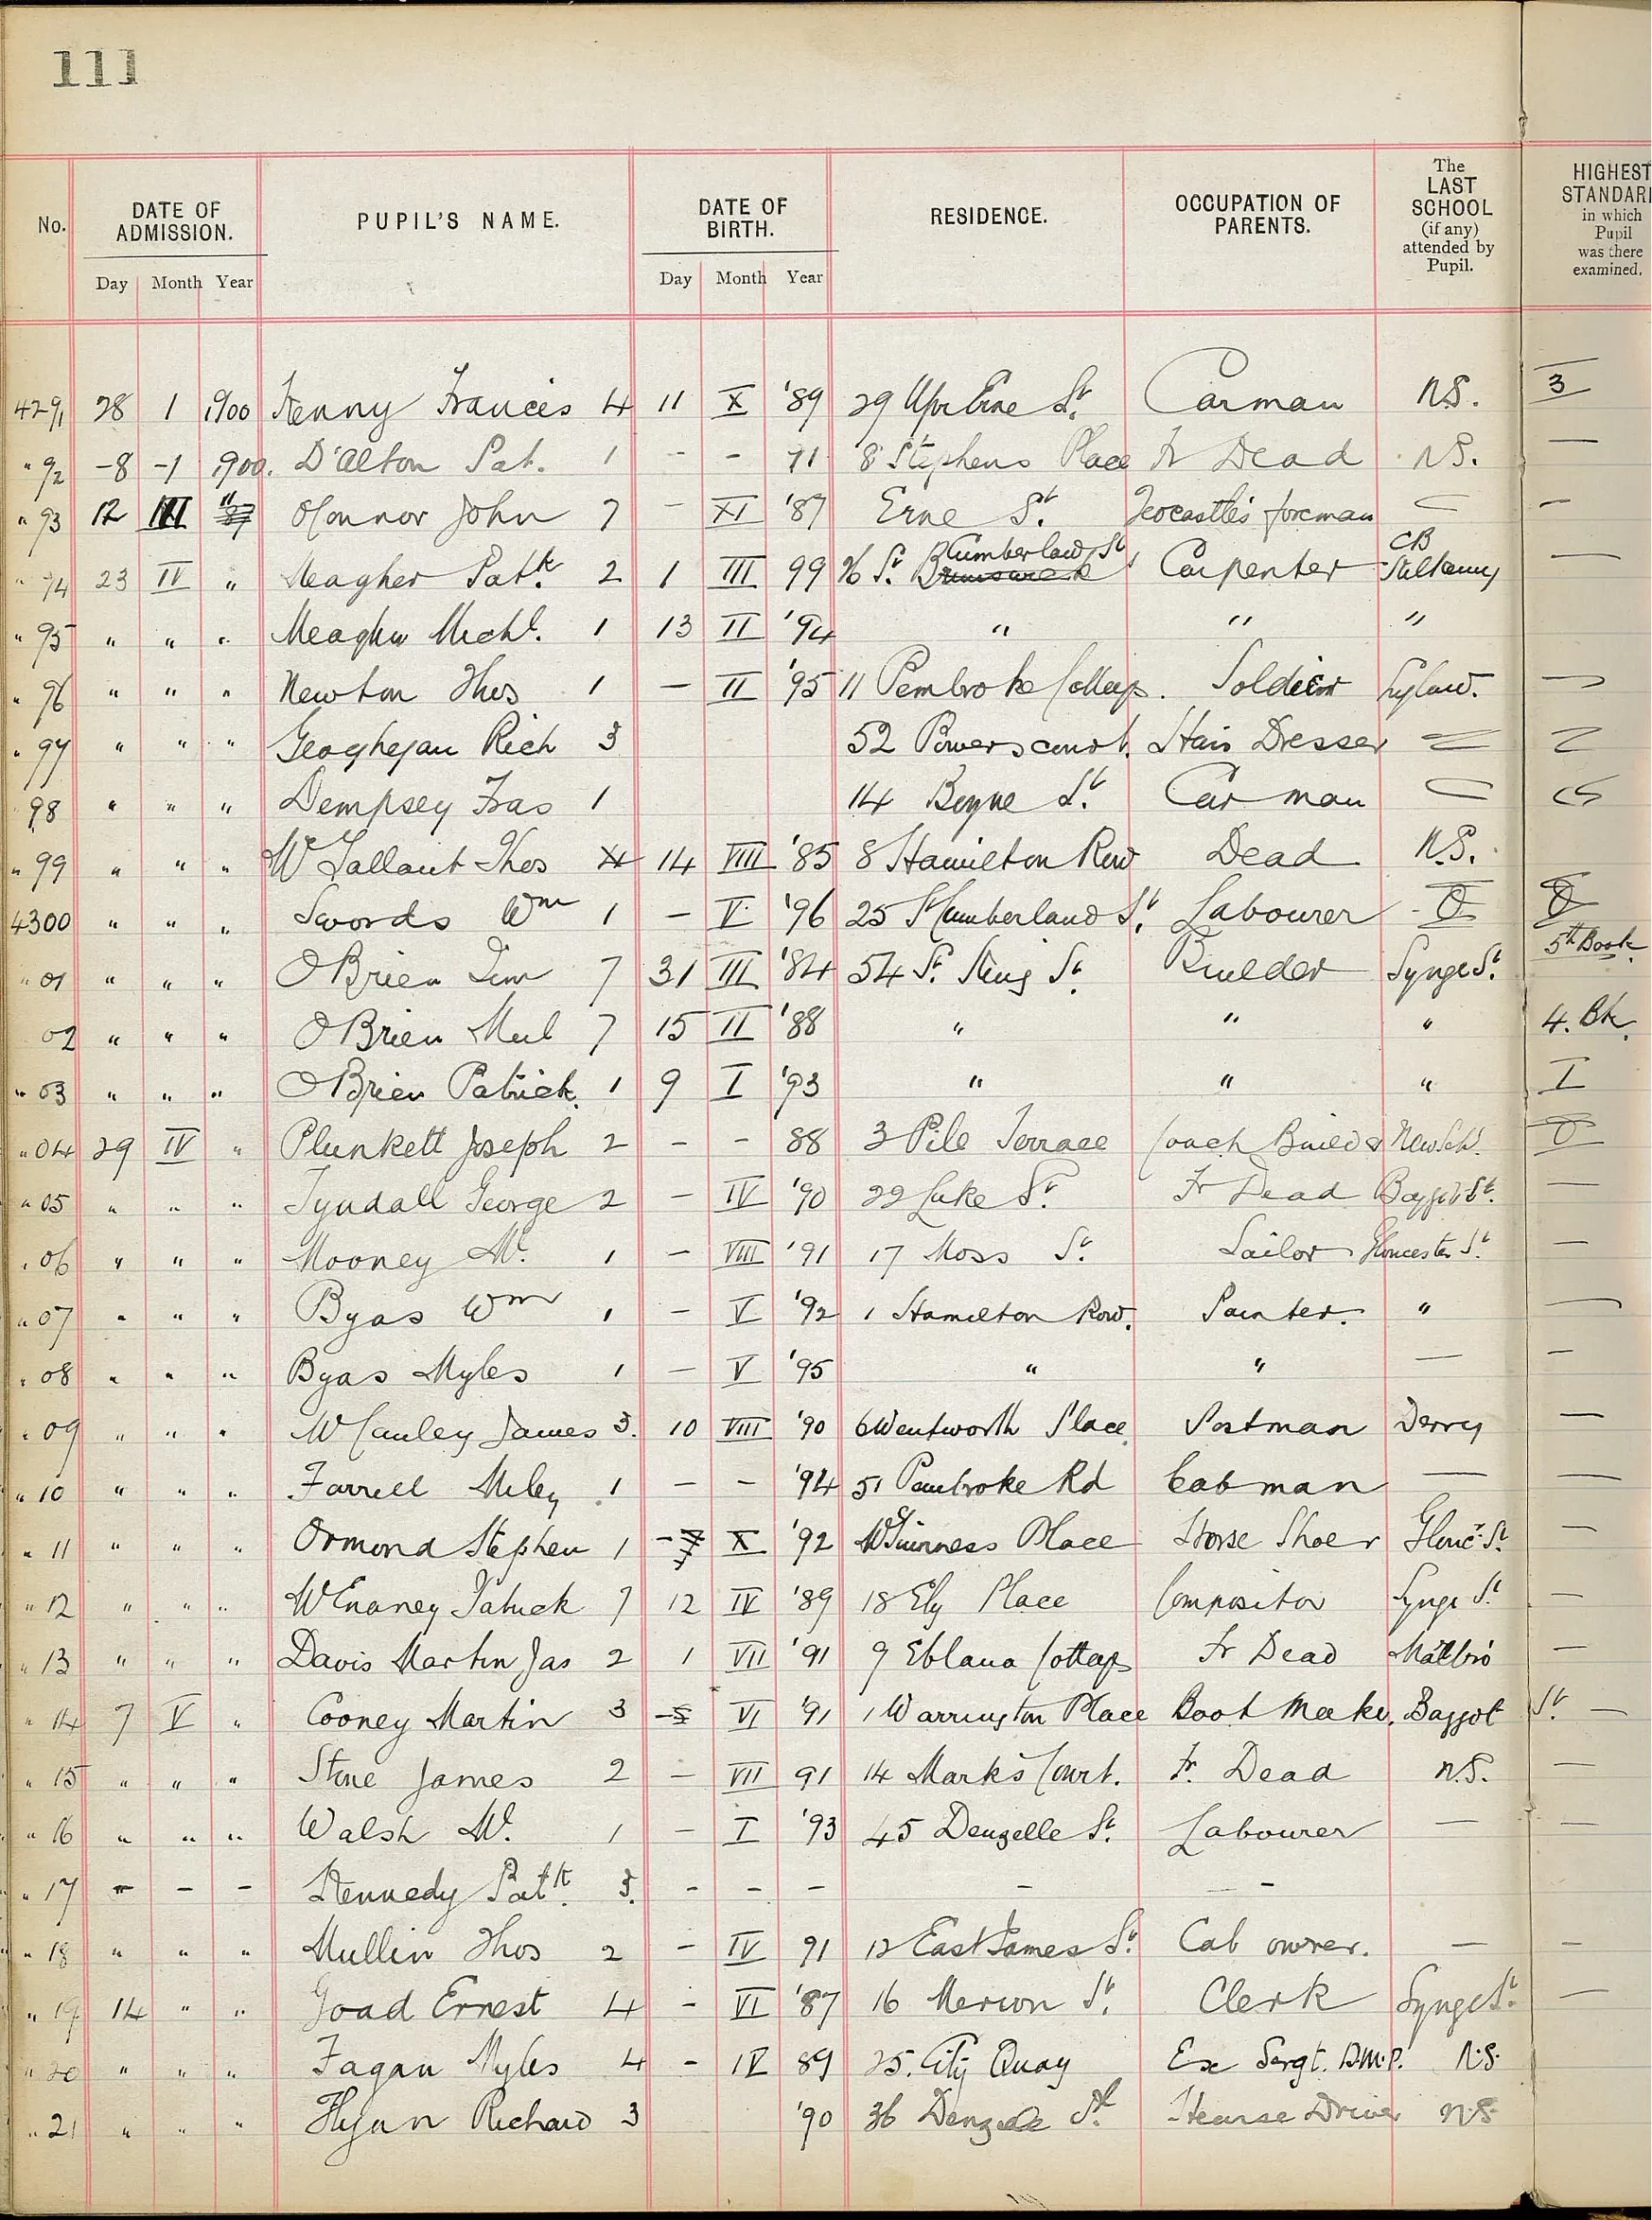 111
No. DATE OF ADMISSION. PUPIL'S NAME. DATE OF BIRTH. RESIDENCE. OCCUPATION OF PARENTS. The LAST SCHOOL (if any) attended by Pupil. HIGHEST STANDARD in which Pupil was there examined.
Day Month Year Day Month Year
4291 28 1 1900 Kenny Francis 4 11 X '89 29 Upr Erne St. Carman N.S. 3
" 92 -8 -1 1900. D'Alton Pat. 1 - - 91 8 Stephens Place Fr Dead N.S. —
" 93 12 III " O'Connor John 7 - XI '87 Erne St. foreman — —
" 94 23 IV " Meagher Patk. 2 1 III 99 Cumberland St Carpenter CB Kilkenny —
" 95 " " " Meagher Michl. 1 13 II '94 " " "
" 96 " " " Newton Thos 1 — II '95 11 Pembroke Cottages. Soldier —
" 97 " " " Geoghegan Rich 3 52 Powerscourt. Hair Dresser — —
98 " " " Dempsey Fras 1 14 Boyne St. Car man —
" 99 " " " McGallant Thos 4 14 VIII '85 8 Hamilton Row Dead N.S.
4300 " " " Swords Wm 1 — V '96 25 S Cumberland St. Labourer - 0 0
" 01 " " " O'Brien Jim 7 31 III '84 54 St. King St. Builder Synge St. 5th Book.
02 " " " O'Brien Ml 7 15 II '88 " " " 4. Bk.
" 03 " " " O'Brien Patrick. 1 9 I '93 " " " I
" 04 29 IV " Plunkett Joseph 2 - - 88 3 Pile Terrace Coach Builder New Sch. 0
" 05 " " " Tyndall George 2 — IV '90 22 Luke St. Fr Dead Baggot St. —
" 06 " " " Mooney Ml. 1 — VIII '91 17 Moss St. Sailor Gloucester St. —
" 07 " " " Byas Wm 1 — V '92 1 Hamilton Row. Painter. " —
" 08 " " " Byas Myles 1 — V '95 " " — —
" 09 " " " McCauley James 3. 10 VIII '90 6 Wentworth Place. Postman Derry —
" 10 " " " Farrell Miley 1 — - '94 51 Pembroke Rd Cabman — —
" 11 " " " Ormond Stephen 1 - X '92 McGuinness Place Horse Shoer Glouc. St. —
" 12 " " " McEnaney Patrick 7 12 IV '89 18 Ely Place Compositor Synge St. —
" 13 " " " Davis Martin Jas 2 1 VII '91 9 Eblana Cottages Fr Dead Malbro —
" 14 7 V " Cooney Martin 3 -5 VI '91 1 Warrington Place Boot Maker. Baggot St. —
" 15 " " " Stone James 2 — VII 91 14 Mark's Court. Fr. Dead N.S. —
" 16 " " " Walsh Ml. 1 — I '93 45 Denzelle St. Labourer — —
" 17 - - - Kennedy Patk. 3. - - - - -
" 18 " " " Mullin Thos 2 - IV 91 12 East James St. Cab owner. — —
" 19 14 " " Goad Ernest 4 - VI '87 16 Merion St. Clerk Synge St. —
" 20 " " " Fagan Myles 4 - IV 89 25. City Quay Ex Sergt. D.M.P. N.S.
" 21 " " " Flynn Richard 3 '90 36 Denzelle St. Hearse Driver N.S.